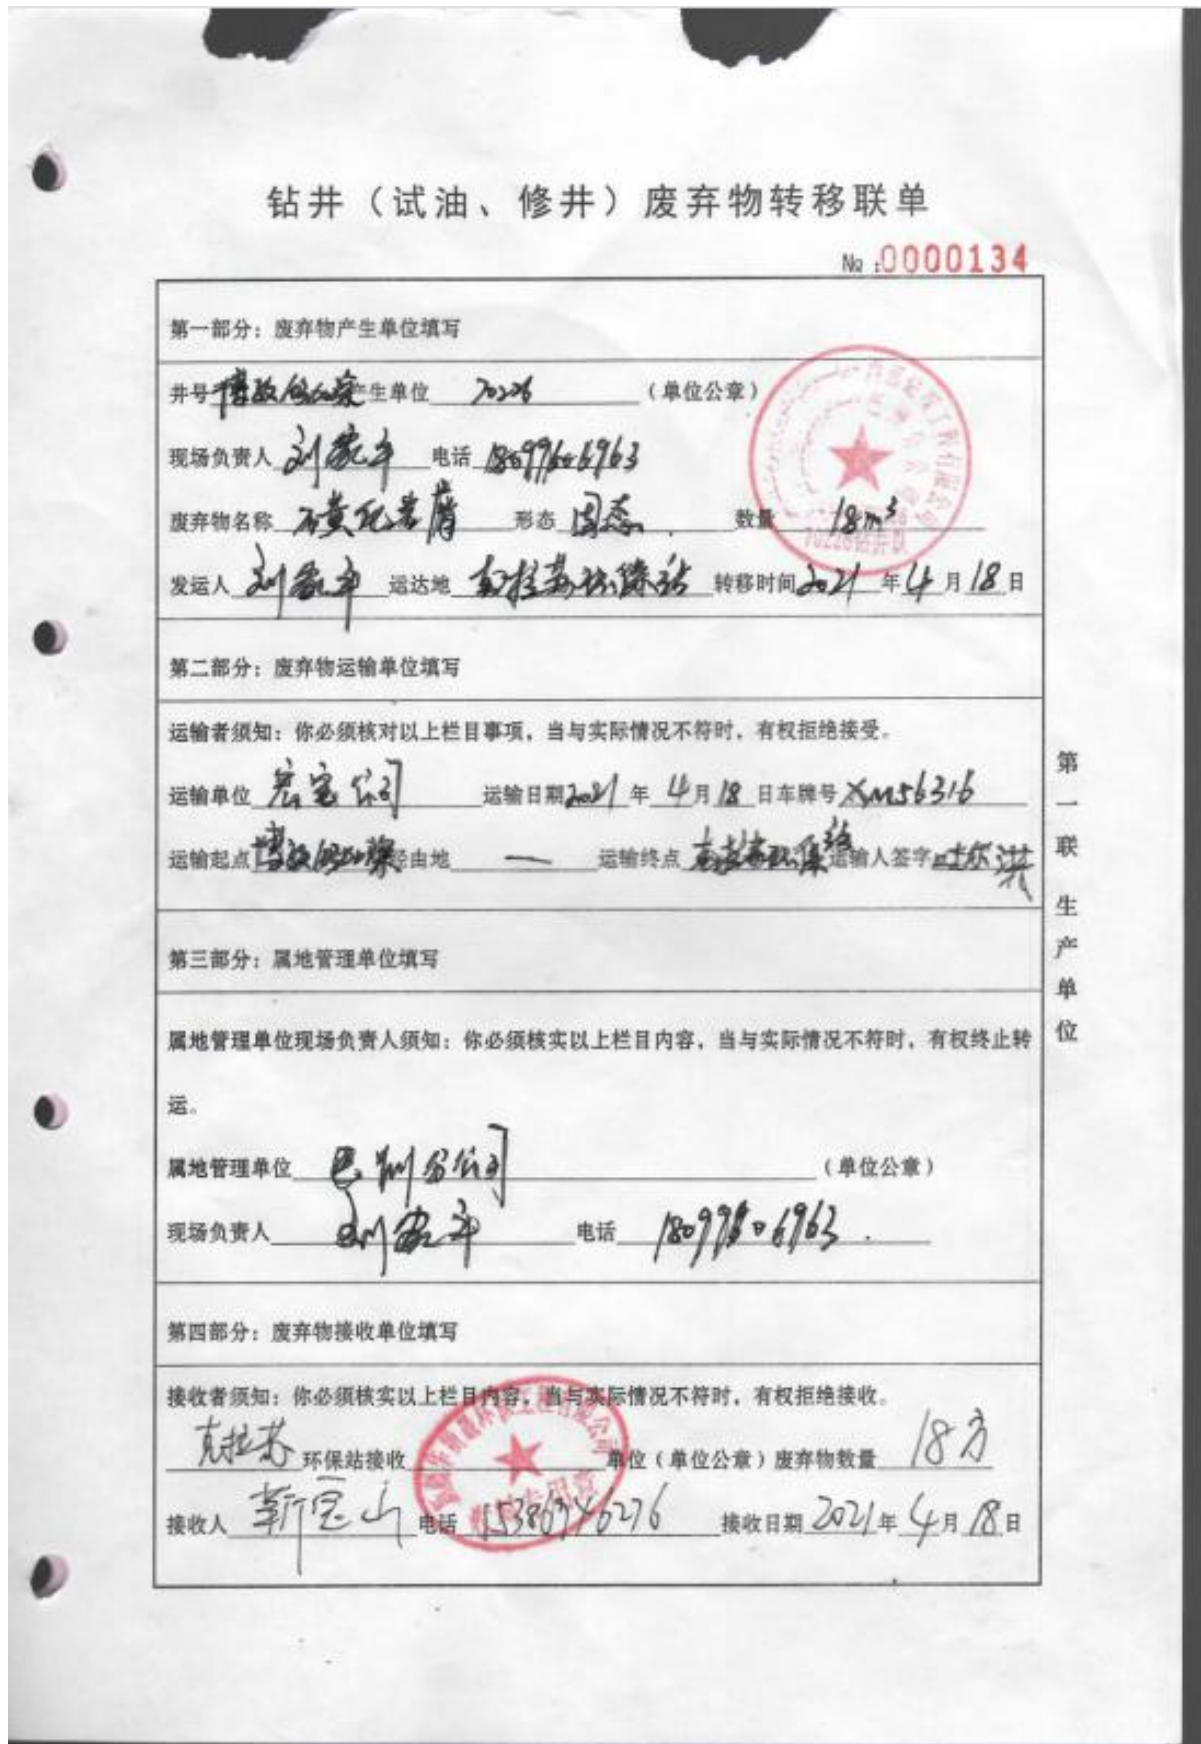 钻井（试油、修井）废弃物转移联单
№：0000134
第一部分：废弃物产生单位填写
井号 产生单位 70226 （单位公章）
现场负责人 刘家平 电话
废弃物名称 磺化岩屑 形态 固态 数量 18m³
发运人 刘家平 运达地 克拉苏环保站 转移时间 2021 年 4 月 18 日
第二部分：废弃物运输单位填写
运输者须知：你必须核对以上栏目事项，当与实际情况不符时，有权拒绝接受。
运输单位 宏宝公司 运输日期 2021 年 4 月 18 日 车牌号 XM56316
运输起点 经由地 — 运输终点 克拉苏环保站 运输人签字
第三部分：属地管理单位填写
属地管理单位现场负责人须知：你必须核实以上栏目内容，当与实际情况不符时，有权终止转
运。
属地管理单位 巴州分公司 （单位公章）
现场负责人 刘家平 电话 18099606963
第四部分：废弃物接收单位填写
接收者须知：你必须核实以上栏目内容，当与实际情况不符时，有权拒绝接收。
克拉苏 环保站接收 单位（单位公章）废弃物数量 18方
接收人 靳宝山 电话 接收日期 2021 年 4 月 18 日
第一联 生产单位